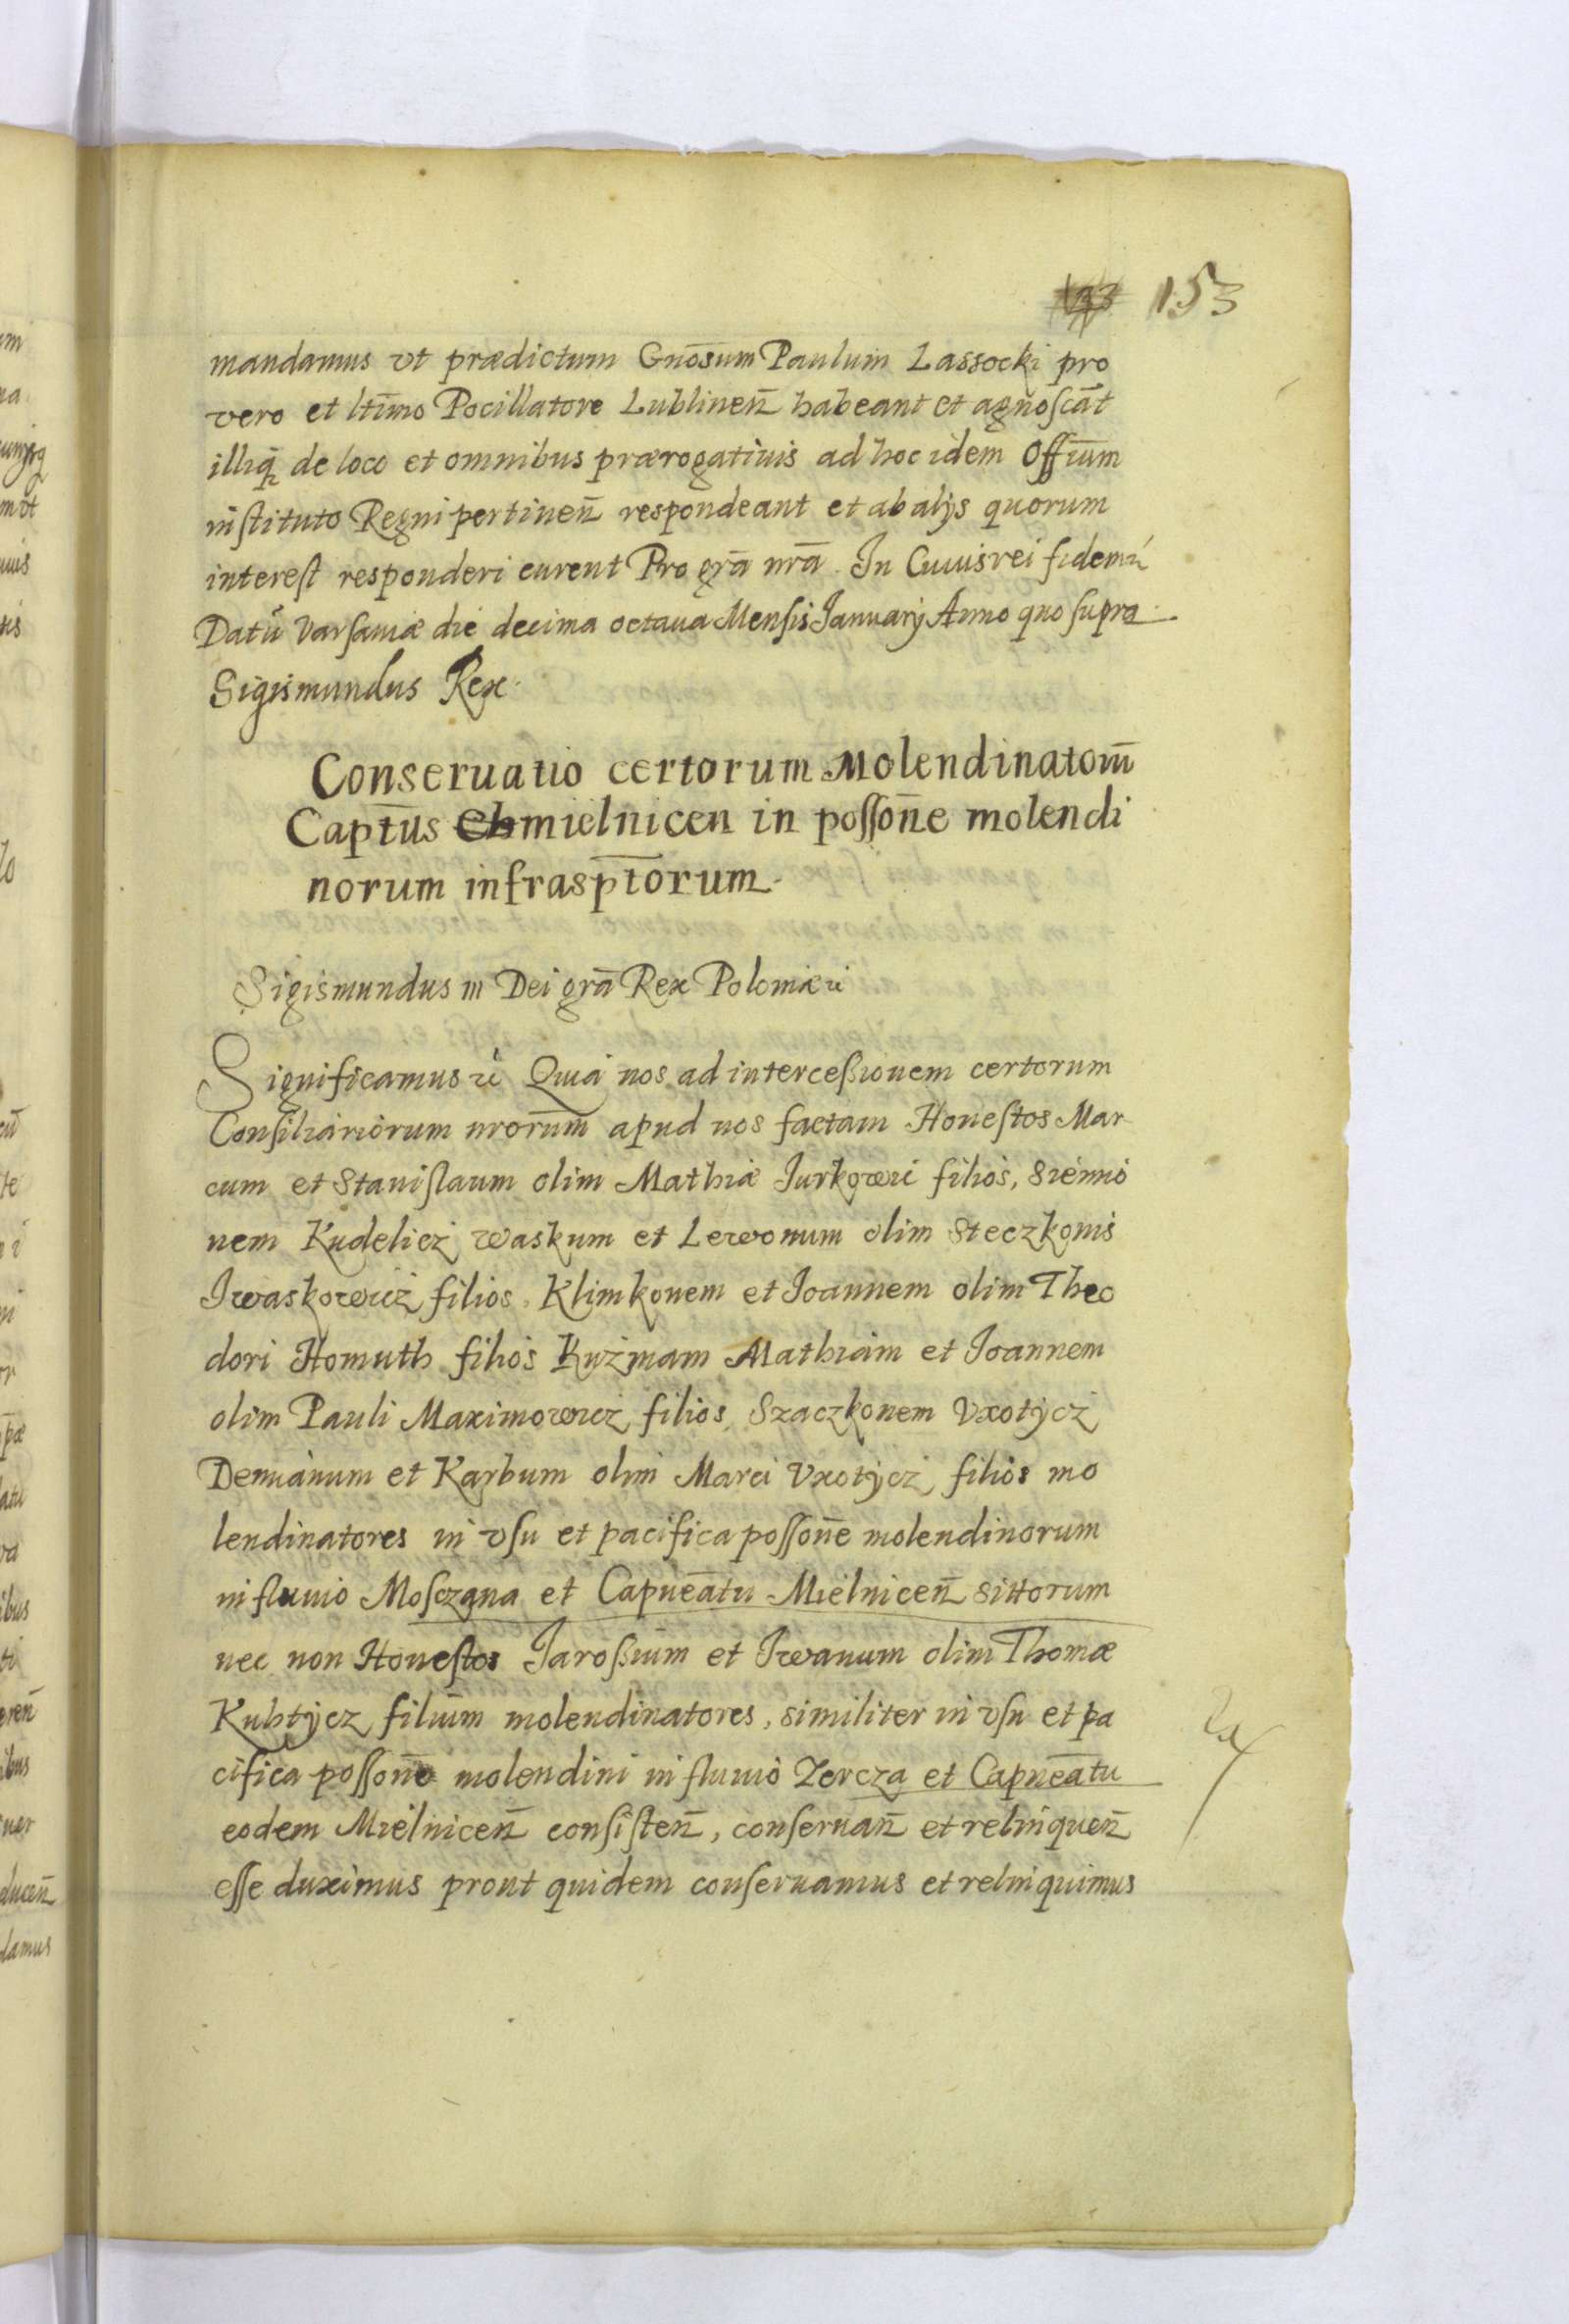 153
mandamus vt prædictum Gnōsum Paulum Lassocki pro
vero et ltīmo Pocillatore Lublinen̄ habeant et agnoſcāt
illiq́ de loco et omnibus prærogatiuis ad hoc idem Offīum
inſtituto Regni pertinen̄ respondeant et ab alÿs quorum
intereſt responderi curent Pro grā nrā. In Cuius rei fidem
Datū Varſauiæ die decima octaua Menſis Januarÿ Anno quo ſupra
Sigismundus Rex.
Conseruatio certorum Molendinatorū
Captūs Chmielnicen in poſſon̄e molendi
norum infrasptorum.
Sigismundus III Dei grā Rex Poloniæ
Significamus Quia nos ad interceſsionem certorum
Conſiliariorum nrorum apud nos factam Honeſtos Mar
cum et Staniſlaum olim Mathiæ Jurkowic filios, Siemio
nem Kudelicz waskum et Lewonum olim Steczkonis
Iwaskowicz filios. Klimkonem et Joannem olim Theo
dori Homuth filios Kuzmam Mathiam et Joannem
olim Pauli Maximowicz filios Szaczkonem Vxotÿcz
Demianum et Karbum olim Marci Vxotÿcz filios mo
lendinatores in vſu et pacifica poſſon̄e molendinorum
in fluuio Moſczana et Capneātu Mielnicen̄ sittorum
nec non Honeſtos Jaroſsium et Iwanum olim Thomæ
Kuhtÿcz filium molendinatores, similiter in vſu et pa
cifica poſſon̄e molendini in fluuio Zercza et Capneātu
eodem Mielnicen̄ conſiſten̄, conſeruan̄ et relinquen̄
eſſe duximus prout quidem conſeruamus et relinquimus